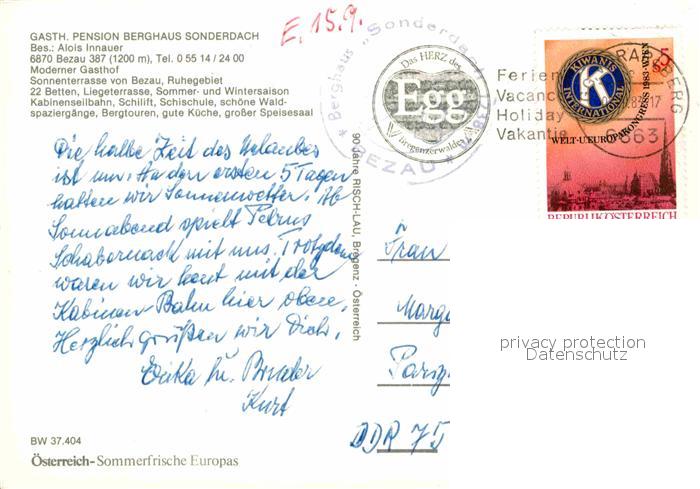 GASTH. PENSION BERGHAUS SONDERDACH
Bes.: Alois Innauer
6870 Bezau 387 (1200 m), Tel. 0 55 14 / 24 00
Moderner Gasthof
Sonnenterrasse von Bezau, Ruhegebiet
22 Betten, Liegeterrasse, Sommer- und Wintersaison
Kabinenseilbahn, Schilift, Schischule, schöne Wald-
spaziergänge, Bergtouren, gute Küche, großer Speisesaal
E. 15.9.
Berghaus „Sonderda
BEZAU
Das HERZ des
Egg
Bregenzerwaldes
Ferien
Vacance
Holiday
Vakantie
KIWANIS
INTERNATIONAL
K
5
WELT-U.EUROPAKONGRESS 1983·WIEN
REPUBLIK ÖSTERREICH
Die halbe Zeit des Urlaubes
ist um. An den ersten 5 Tagen
hatten wir Sonnenwetter. Ab
Sonnabend spielt Petrus
Schabernack mit uns. Trotzdem
waren wir heut mit der
Kabinen-Bahn hier oben.
Herzlich grüßen wir Dich,
Erika u. Bruder
Kurt
90 Jahre RISCH-LAU, Bregenz - Österreich
Frau
Marg
DDR 75
privacy protection
Datenschutz
BW 37.404
Österreich-Sommerfrische Europas